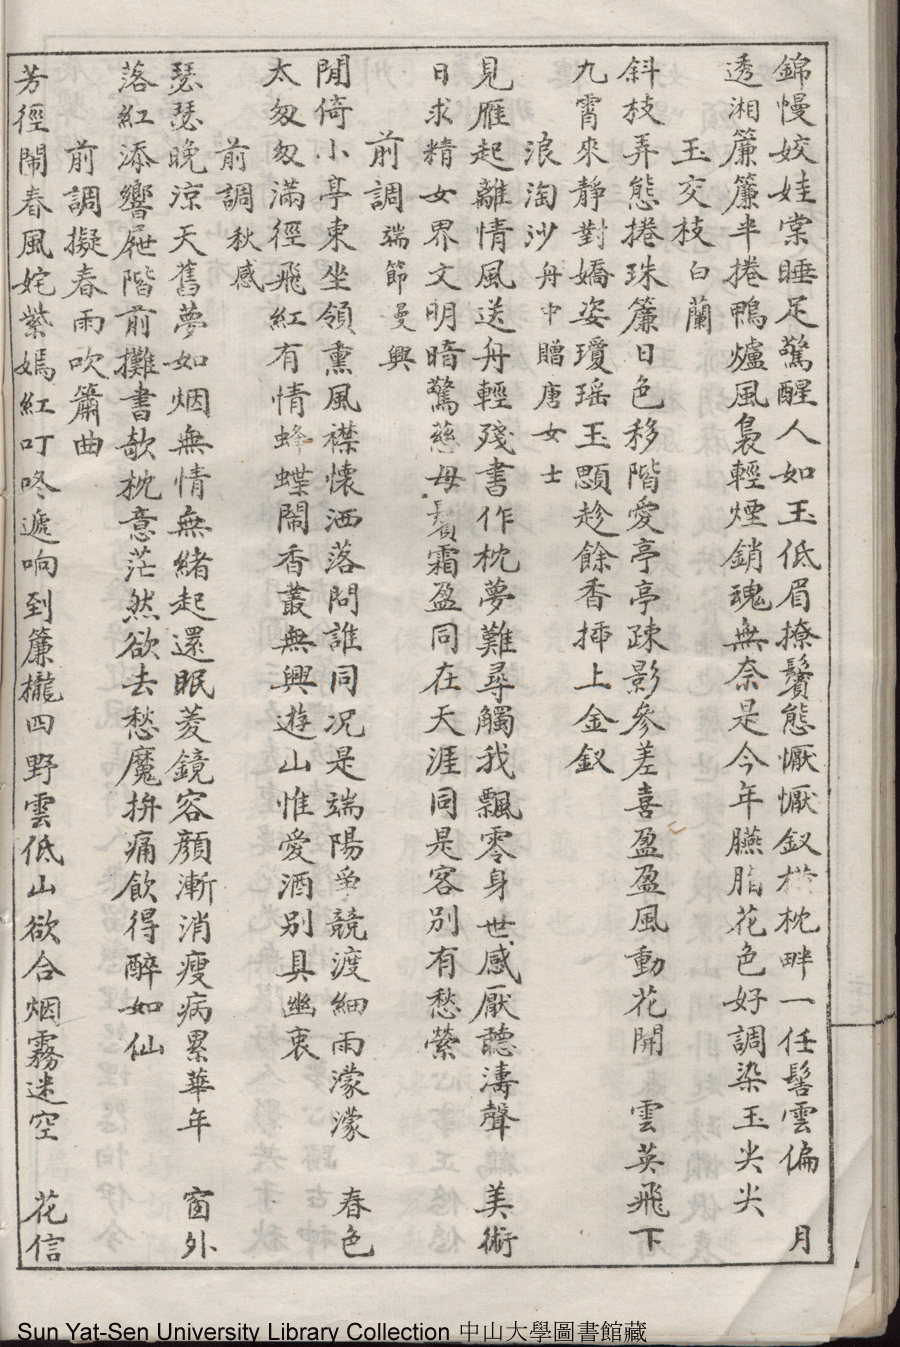 錦幔姣娃棠睡足驚醒人如玉低眉撩鬢態懨懨釵橫枕畔一任髻雲偏　月
透湘簾簾半捲鴨爐風裊輕煙銷魂無奈是今年臙脂花色好調染玉尖尖
玉交枝 白蘭
斜枝弄態捲珠簾日色移階愛亭亭疎影參差喜盈盈風動花開　雲英飛下
九霄來靜對嬌姿瓊瑤玉顋趁餘香揷上金釵
浪淘沙 舟中贈唐女士
見雁起離情風送舟輕殘書作枕夢難尋觸我飄零身世感厭聽濤聲　美術
日求精女界文明暗驚慈母鬢霜盈同在天涯同是客別有愁縈
前調 端節曼興
閒倚小亭東坐領熏風襟懷洒落問誰同况是端陽爭競渡細雨濛濛　春色
太匆匆滿徑飛紅有情蜂蝶鬧香叢無興遊山惟愛酒別具幽衷
前調 秋感
瑟瑟晚涼天舊夢如烟無情無緒起還眠菱鏡容顏漸消瘦病累華年　窗外
落紅添響屟階前攤書欹枕意茫然欲去愁魔拚痛飲得醉如仙
前調擬春雨吹簫曲
芳徑鬧春風姹紫嫣紅叮咚遞响到簾櫳四野雲低山欲合烟霧迷空　花信
Sun Yat-Sen University Library Collection 中山大學圖書館藏